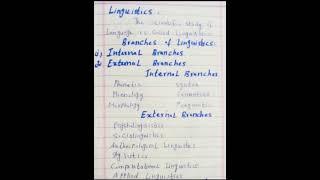 Linguistics.
The scientific study of
Language is called Linguistics.
Branches of Linguistics:
1) Internal Branches
2) External Branches
Internal Branches
Phonetics Syntax
Phonology Semantics
Morphology Pragmatic
External Branches
Psycholinguistics
Sociolinguistics
Anthropological Linguistics
Stylistics
Computational Linguistics
Applied Linguistics